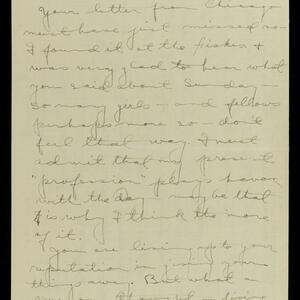 Your letter from Chicago
must have just missed me
I found it at the
was very glad to hear what
you said about Sunday –
so many girls – and fellows
perhaps more so – don't
feel that way. I must
admit that my present
"profession" plays havoc
with the day – maybe that
is why I think the more
of it.
You are living up to your
reputation in giving your
things away. But what a